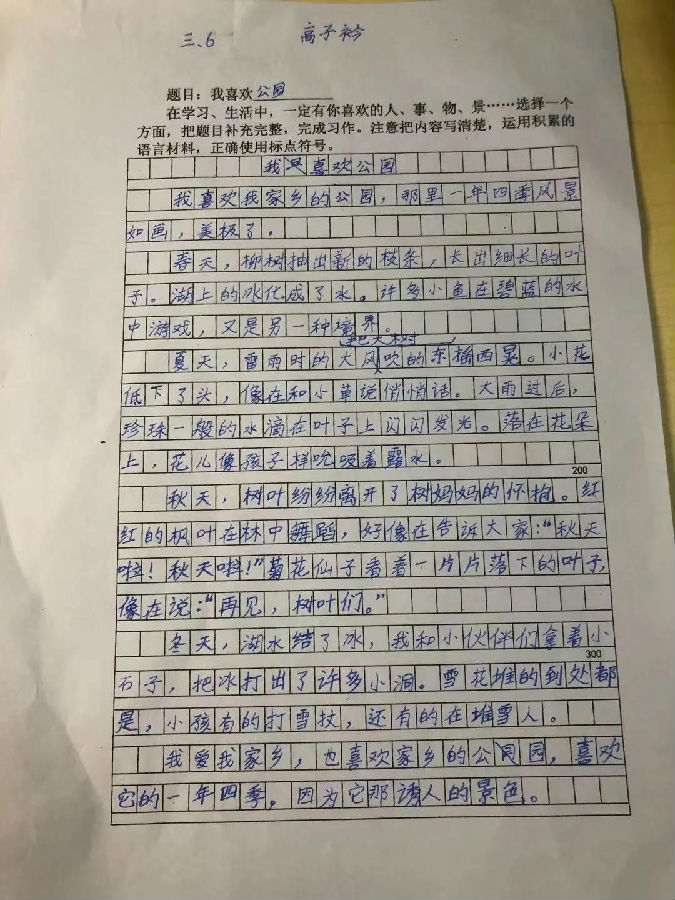 三.6 高子衿
题目：我喜欢公园
在学习、生活中，一定有你喜欢的人、事、物、景……选择一个
方面，把题目补充完整，完成习作。注意把内容写清楚，运用积累的
语言材料，正确使用标点符号。
我喜欢公园
我喜欢我家乡的公园，那里一年四季风景
如画，美极了。
春天，柳树抽出新的枝条，长出细长的叶
子。湖上的冰化成了水。许多小鱼在碧蓝的水
中游戏，又是另一种境界。
把大树
夏天，雷雨时的大风吹的东摇西晃。小花
低下了头，像在和小草说悄悄话。大雨过后，
珍珠一般的水滴在叶子上闪闪发光。落在花朵
上，花儿像孩子样吮吸着露水。
200
秋天，树叶纷纷离开了树妈妈的怀抱。红
红的枫叶在林中舞蹈，好像在告诉大家：“秋天
啦！秋天啦！”菊花仙子看着一片片落下的叶子，
像在说：“再见，树叶们。”
冬天，湖水结了冰，我和小伙伴们拿着小
300
石子，把冰打出了许多小洞。雪花堆的到处都
是，小孩有的打雪扙，还有的在堆雪人。
我爱我家乡，也喜欢家乡的公园，喜欢
它的一年四季。因为它那诱人的景色。